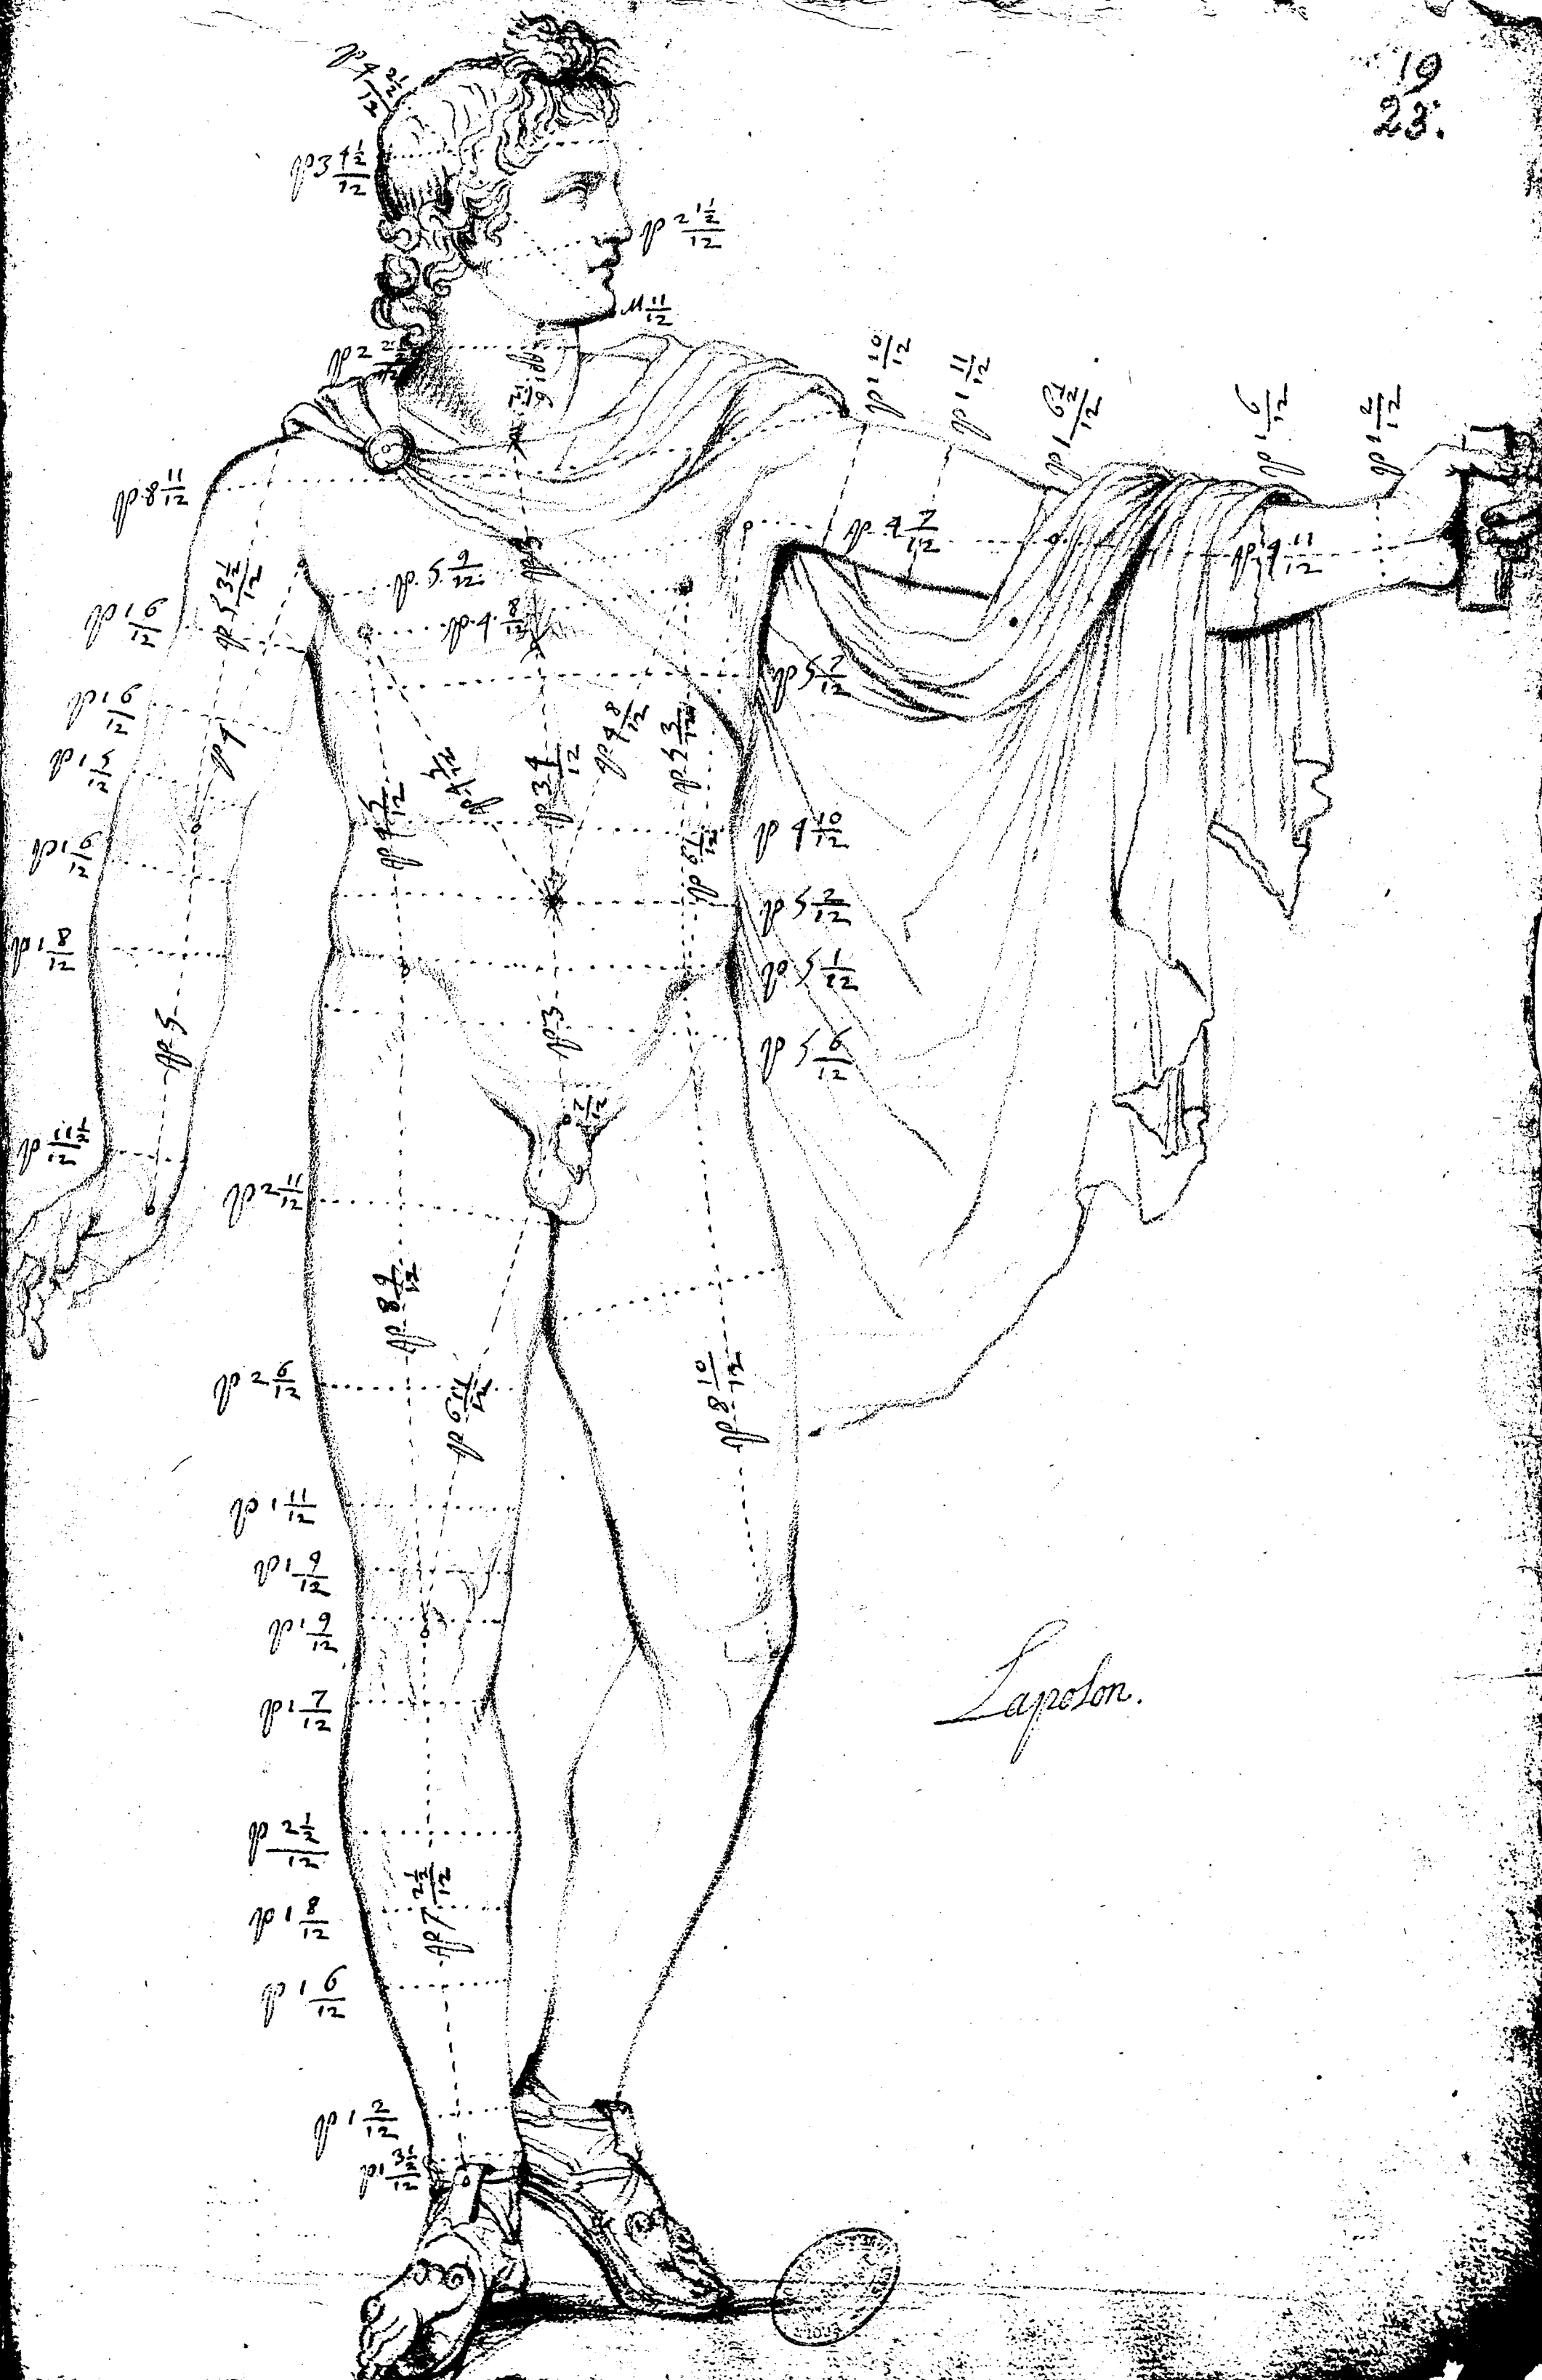 19
23.
p 4 2½/12
p 3 4½/12
p 2 1½/12
11/12
p 1 10/12
p 1 11/12
p 1 6½/12
p 1 6/12
p 1 2/12
p 8 11/12
p 4 7/12
p 4 11/12
p 5 9/12
p 3
p 5 3½/12
p 1 6/12
p 4 8/12
p 5 7/12
p 1 6/12
p 4
p 4 8/12
p 5 3/12
p 1 5/12
p 3 4/12
p 4 5/12
p 1 6/12
p 4 10/12
p 6 1/12
p 5 2/12
p 1 8/12
p 5 1/12
p 5
p 3
p 5 6/12
2/12
p 11½/12
p 2 11/12
p 8 9/12
p 2 6/12
p 6 11/12
p 8 10/12
p 1 11/12
p 1 9/12
p 1 9/12
p 1 7/12
Lapolon.
p 2½/12
p 7 2½/12
p 1 8/12
p 1 6/12
p 1 2/12
p 1 3½/12